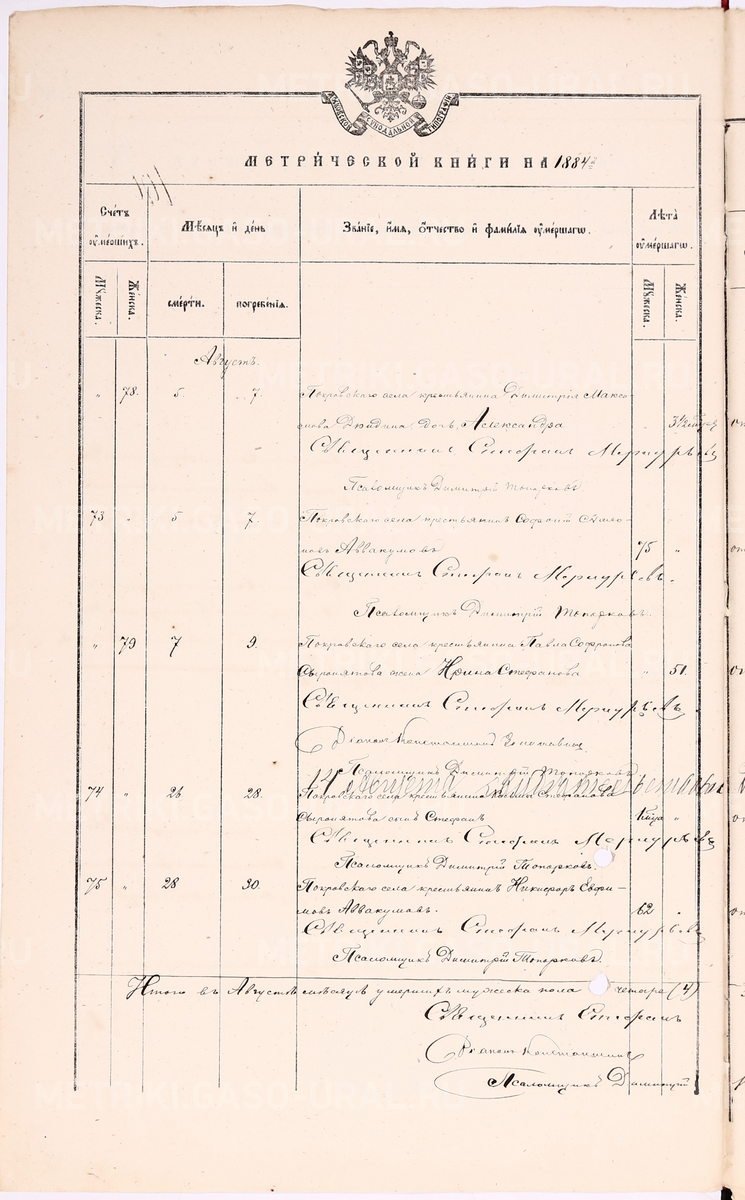 МОСКОВСКОЙ СѴНОДАЛЬНОЙ ТИПОГРАФІИ
МЕТРИ́ЧЕСКОЙ КНИ́ГИ НА 1884й
Сче́тъ ѹ҆ме́ршихъ.
Мѣ́сяцъ и҆ де́нь
Зва́нїе, и҆́мя, ѻ҆́тчество и҆ фами́лїя ѹ҆ме́ршагѡ.
Лѣ́та ѹ҆ме́ршагѡ.
Мꙋ́жеска.
Же́нска.
сме́рти.
погребе́нїя.
Мꙋ́жеска.
Же́нска.
Августъ.
„ 78. 5. 7. Покровскаго села крестьянина Димитрія Макси-
мова дочь, Александра „
Священникъ Стефанъ Меркурьевъ
Псаломщикъ Димитрій Топорковъ
73 „ 5 7. Покровскаго села крестьянинъ Софоній
Аввакумовъ 75 „
Священникъ Стефанъ Меркурьевъ.
Псаломщикъ Димитрій Топорковъ.
„ 79 7 9. Покровскаго села крестьянина Павла Софронова
Сыропятова жена Ирина Стефанова „ 51.
Священникъ Стефанъ Меркурьевъ.
Діаконъ Константинъ
Псаломщикъ Димитрій Топорковъ
74 „ 26 28. Покровскаго села крестьянина Стефанова
Сыропятова сынъ Стефанъ „
Священникъ Стефанъ Меркурьевъ
Псаломщикъ Димитрій Топорковъ.
75 „ 28 30. Покровскаго села крестьянинъ Никифоръ Евфи-
мовъ Аввакумовъ. 62 „
Священникъ Стефанъ Меркурьевъ
Псаломщикъ Димитрій Топорковъ
Итого въ Августѣ мѣсяцѣ умершихъ мужеска пола четыре (4)
Священникъ Стефанъ
Діаконъ Константинъ
Псаломщикъ Димитрій